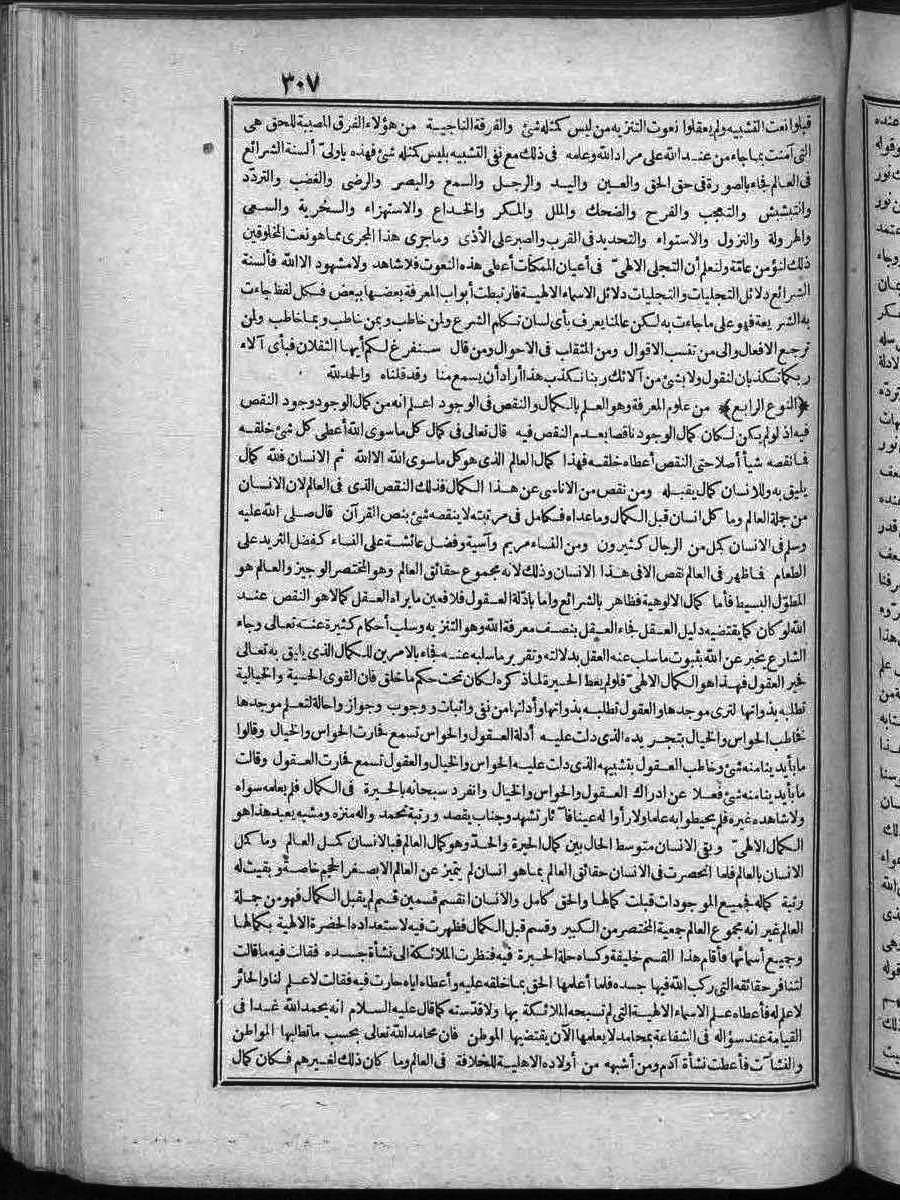 ٣٠٧
قبلوا نعت التشبيه ولم يعقلوا نعوت التنزيه من ليس كمثله شئ والفرقة الناجية من هؤلاء الفرق المصيبة للحق هى
التى آمنت بما جاء من عند الله على مراد الله وعلمه فى ذلك مع نفى التشبيه بليس كمثله شئ فهذه ياولىّ ألسنة الشرائع
فى العالم فجاء بالصورة فى حق الحق والعين واليد والرجل والسمع والبصر والرضى والغضب والتردّد
والتبشبش والتعجب والفرح والضحك والملل والمكر والخداع والاستهزاء والسخرية والسعى
والهرولة والنزول والاستواء والتحديد فى القرب والصبر على الأذى وماجرى هذا المجرى مما هو نعت المخلوقين
ذلك لنؤمن عامّة ولنعلم أن التجلى الالهىّ فى أعيان الممكنات أعطى هذه النعوت فلا شاهد ولا مشهود الا الله فألسنة
الشرائع دلائل التجليات والتجليات دلائل الاسماء الالهية فارتبطت أبواب المعرفة بعضها ببعض فكل لفظ جاءت
به الشريعة فهو على ما جاءت به لكن عالمنا يعرف بأى لسان تكلم الشرع ولمن خاطب وبمن خاطب وبما خاطب ولمن
ترجع الافعال والى من تنسب الاقوال ومن المتقلب فى الاحوال ومن قال سنفرغ لكم أيها الثقلان فبأى آلاء
ربكما تكذبان لنقول ولا بشئ من آلائك ربنا نكذب هذا أراد أن يسمع منا وقد قلناه والحمد لله
﴿النوع الرابع﴾ من علوم المعرفة وهو العلم بالكمال والنقص فى الوجود اعلم انه من كمال الوجود وجود النقص
فيه اذ لو لم يكن لكان كمال الوجود ناقصا بعدم النقص فيه قال تعالى فى كمال كل ما سوى الله أعطى كل شئ خلقه
فما نقصه شيأ أصلا حتى النقص أعطاه خلقه فهذا كمال العالم الذى هو كل ما سوى الله الا الله ثم الانسان فلله كمال
يليق به وللانسان كمال يقبله ومن نقص من الاناسى عن هذا الكمال فذلك النقص الذى فى العالم لان الانسان
من جملة العالم وما كل انسان قبل الكمال وما عداه فكامل فى مرتبته لا ينقصه شئ بنص القرآن قال صلى الله عليه
وسلم فى الانسان كمل من الرجال كثيرون ومن النساء مريم وآسية وفضل عائشة على النساء كفضل الثريد على
الطعام فما ظهر فى العالم نقص الا فى هذا الانسان وذلك لانه مجموع حقائق العالم وهو المختصر الوجيز والعالم هو
المطوّل البسيط فأما كمال الالوهية فظاهر بالشرائع واما بادلة العقول فلا فعين ما يراه العقل كمالا هو النقص عند
الله لو كان كما يقتضيه دليل العقل فجاء العقل بنصف معرفة الله وهو التنزيه وسلب أحكام كثيرة عنه تعالى وجاء
الشارع يخبر عن الله بثبوت ما سلب عنه العقل بدلالته وتقرير ما سلبه عنه فجاء بالامرين للكمال الذى يليق به تعالى
فحير العقول فهذا هو الكمال الالهىّ فلو لم يعط الحيرة لما ذكره لكان تحت حكم ما خلق فان القوى الحسية والخيالية
تطلبه بذواتها لترى موجدها والعقول تطلبه بذواتها وأدلتها من نفى واثبات ووجوب وجواز واحالة لتعلم موجدها
فخاطب الحواس والخيال بتجريده الذى دلت عليه أدلة العقول والحواس تسمع فحارت الحواس والخيال وقالوا
ما بأيدينا منه شئ وخاطب العقول بتشبيهه الذى دلت عليه الحواس والخيال والعقول تسمع فحارت العقول وقالت
ما بأيدينا منه شئ فعلا عن ادراك العقول والحواس والخيال وانفرد سبحانه بالحيرة فى الكمال فلم يعلمه سواه
ولا شاهده غيره فلم يحيطوا به علما ولا رأوا له عينا فآثار تشهد وجناب يقصد ورتبة تحمد واله منزه ومشبه يعبد هذا هو
الكمال الالهىّ وبقى الانسان متوسط الحال بين كمال الحيرة والحدّ وهو كمال العالم فبالانسان كمل العالم وما كمل
الانسان بالعالم فلما انحصرت فى الانسان حقائق العالم بما هو انسان لم يتميز عن العالم الا بصغر الحجم خاصة وبقيت له
رتبة كماله فجميع الموجودات قبلت كمالها والحق كامل والانسان انقسم قسمين قسم لم يقبل الكمال فهو من جملة
العالم غير انه مجموع العالم جمعية المختصر من الكبير وقسم قبل الكمال فظهرت فيه لاستعداده الحضرة الالهية بكمالها
وجميع أسمائها فأقام هذا القسم خليفة وكساه حلة الحيرة فيه فنظرت الملائكة الى نشأة جسده فقالت فيه ما قالت
لتنافر حقائقه التى ركب الله فيها جسده فلما أعلمها الحق بما خلقه عليه وأعطاه اياه حارت فيه فقالت لا علم لنا والحائر
لا علم له فأعطاه علم الاسماء الالهية التى لم تسبحه الملائكة بها ولا قدسته كما قال عليه السلام انه يحمد الله غدا فى
القيامة عند سؤاله فى الشفاعة بمحامد لا يعلمها الآن يقتضيها الموطن فان محامد الله تعالى بحسب ما تطلبها المواطن
والنشآت فأعطت نشأة آدم ومن أشبهه من أولاده الاهلية للخلافة فى العالم وما كان ذلك لغيرهم فكان كمال